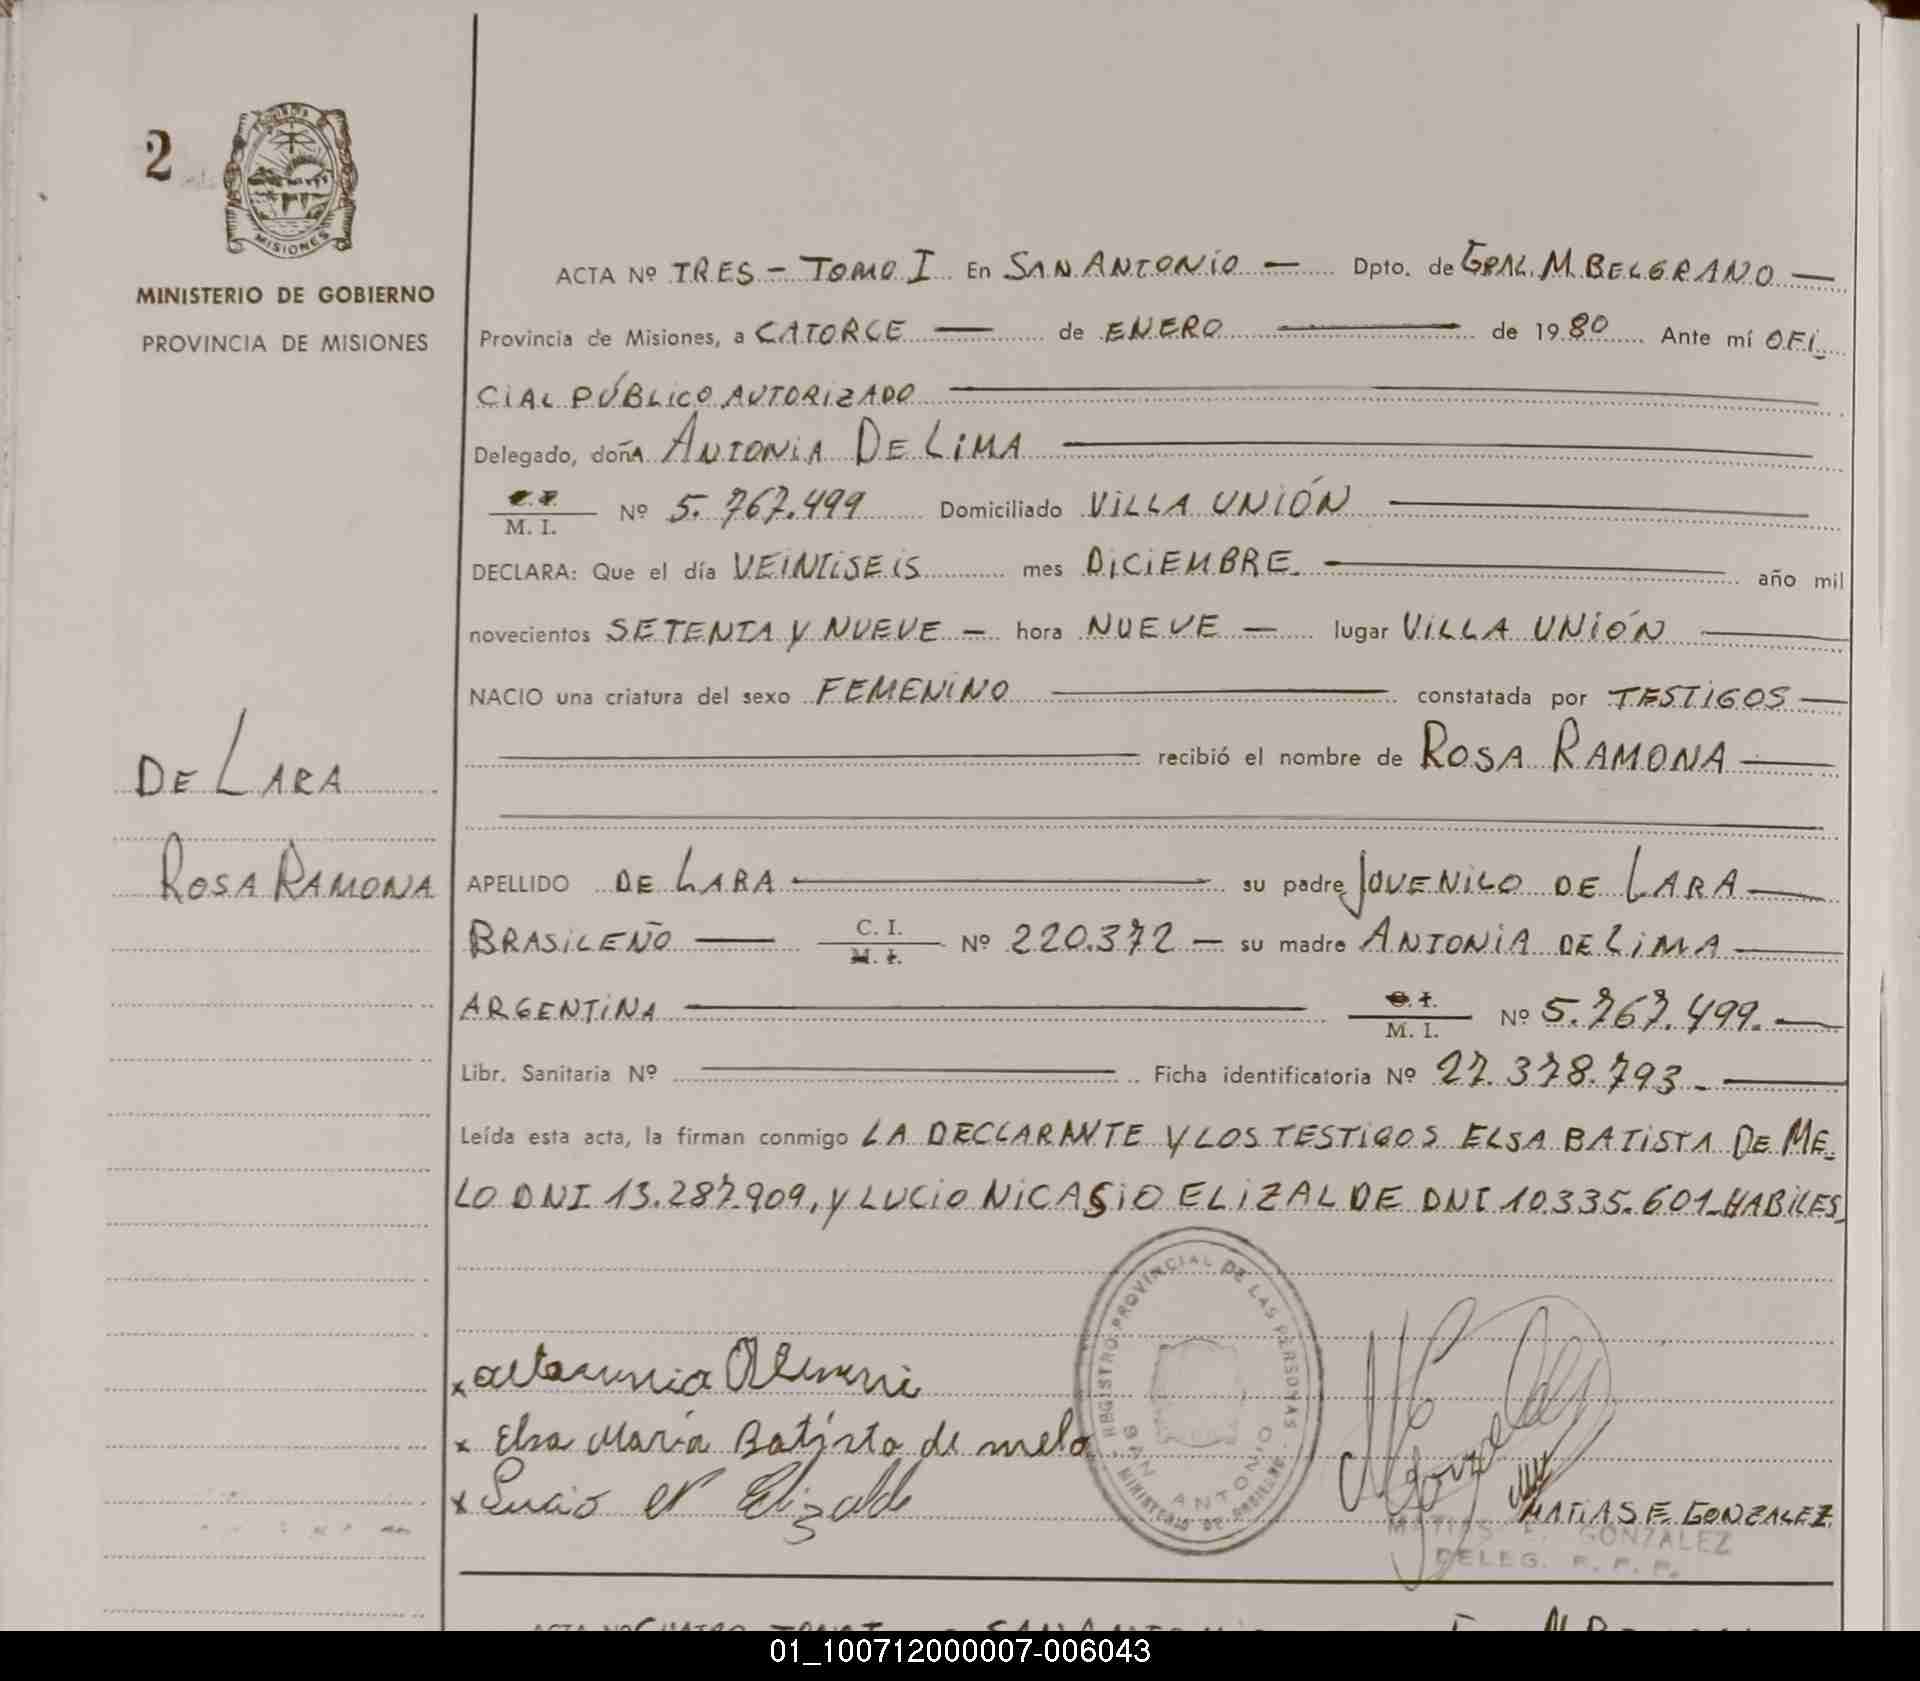 2
MISIONES
MINISTERIO DE GOBIERNO
PROVINCIA DE MISIONES
ACTA Nº TRES - TOMO I En SAN ANTONIO — Dpto. de GRAL. M. BELGRANO —
Provincia de Misiones, a CATORCE — de ENERO — de 1980 Ante mí OFI-
CIAL PÚBLICO AUTORIZADO
Delegado, doña ANTONIA DE LIMA
C. I.
M. I. Nº 5.767.499 Domiciliado VILLA UNIÓN
DECLARA: Que el día VEINTISEIS mes DICIEMBRE. año mil
novecientos SETENTA Y NUEVE — hora NUEVE — lugar VILLA UNIÓN
NACIO una criatura del sexo FEMENINO constatada por TESTIGOS
recibió el nombre de ROSA RAMONA
DE LARA
ROSA RAMONA
APELLIDO DE LARA su padre JOVENILO DE LARA
BRASILEÑO — C. I.
M. I. Nº 220.372 — su madre ANTONIA DE LIMA
ARGENTINA C. I.
M. I. Nº 5.767.499.
Libr. Sanitaria Nº Ficha identificatoria Nº 27.378.793
Leída esta acta, la firman conmigo LA DECLARANTE Y LOS TESTIGOS ELSA BATISTA DE ME-
LO DNI 13.287.909, Y LUCIO NICASIO ELIZALDE DNI 10.335.601 HABILES
REGISTRO PROVINCIAL DE LAS PERSONAS
SAN ANTONIO
MINISTERIO DE GOBIERNO
x Elsa María Batista de melo
x Lucio N Elizalde
MATIAS E. GONZALEZ
MATIAS E. GONZALEZ
DELEG. R. P. P.
ACTA Nº CUATRO TOMO I SAN ANTONIO
01_100712000007-006043